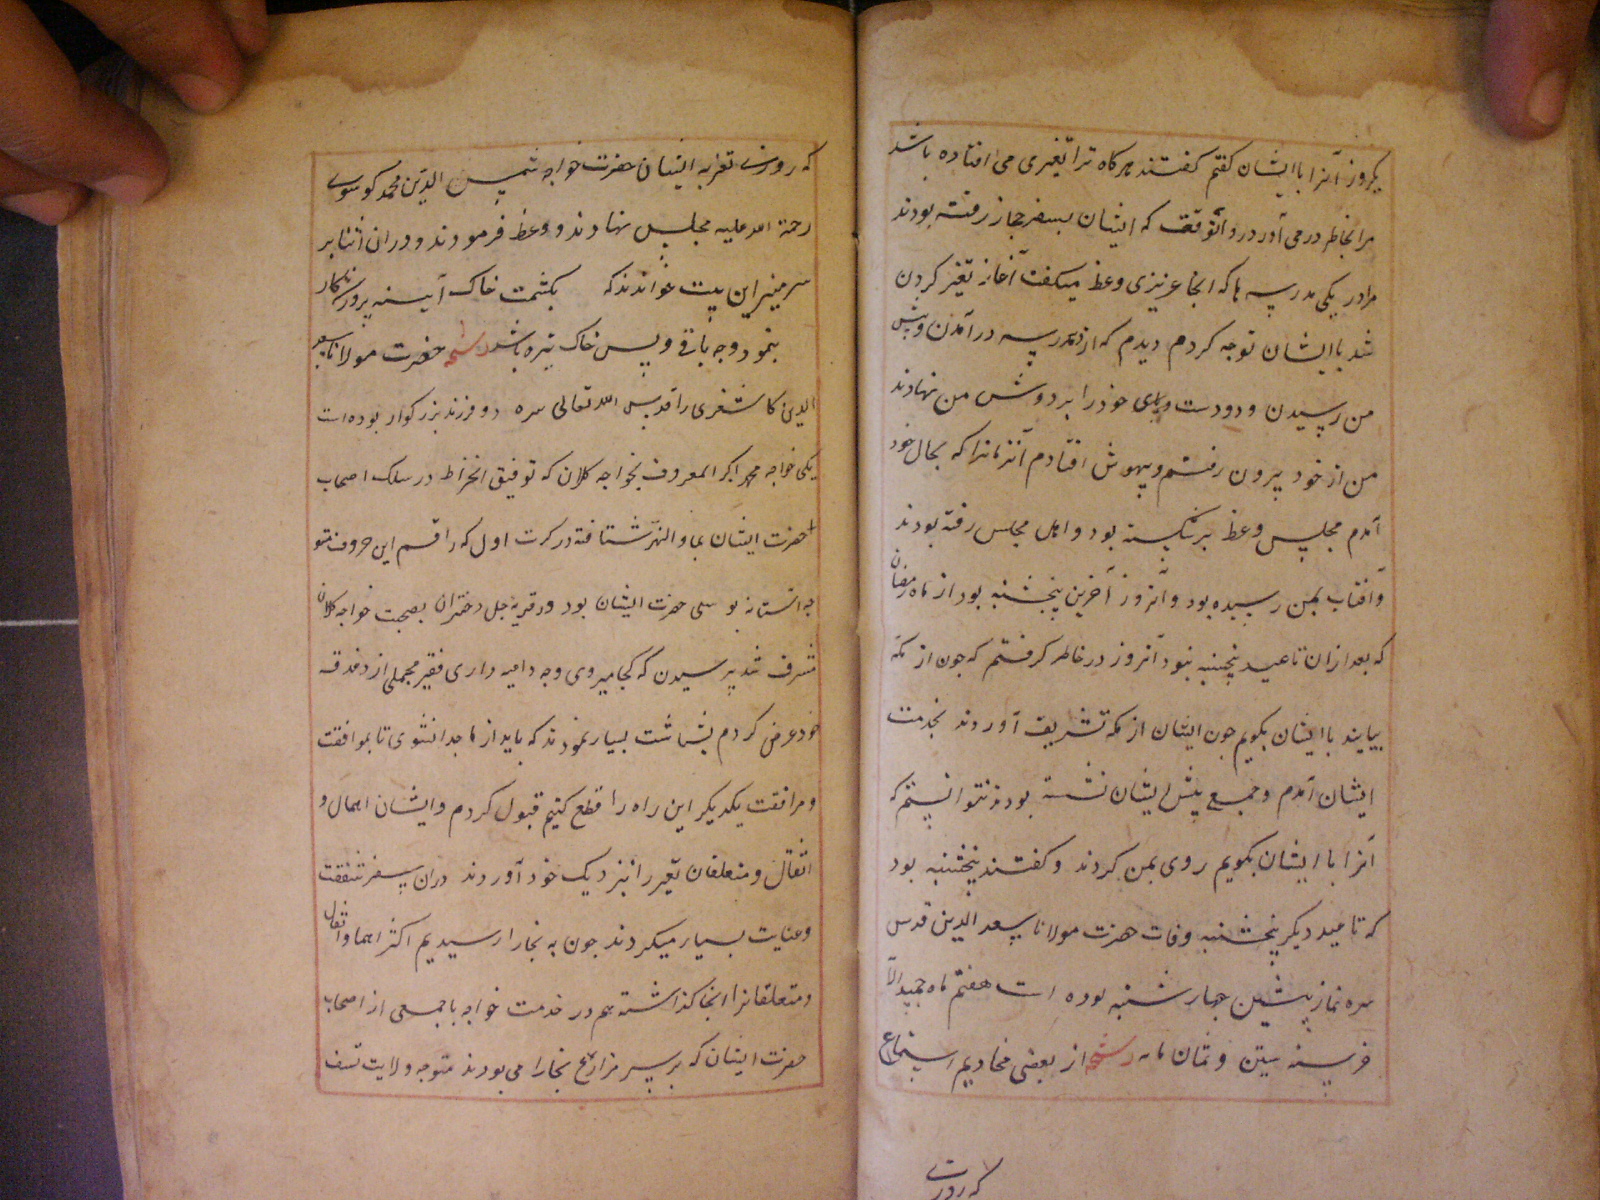 یکروز آنرا باایشان کفتم کفتند هرکاه ترا تغیری می افتاده باشد
مرا بخاطر درمی آور در وآنوقت که ایشان بسفر حجاز رفته بودند
مرا در یکی مدرسه ها که آنجا عزیزی وعظ میکفت آغاز تغیر کردن
شد باایشان توجه کردم دیدم که از در مدرسه درآمدن وپیش
من رسیدن ودودست وپای خودرا بردوش من نهادند
من از خود بیرون رفتم وبیهوش افتادم آنزمانرا که بحال خود
آمدم مجلس وعظ برشکسته بود واهل مجلس رفته بودند
وآفتاب بمن رسیده بود وآنروز آخرین پنجشنبه بود از ماه رمضان
که بعدازان تا عید پنجشنبه نبود آنروز درخاطر کرفتم که جون از مکه
بیایند باایشان بکویم جون ایشان از مکه تشریف آوردند بخدمت
ایشان آمدم وجمعی پیش ایشان نشسته بودند نتوانستم که
آنرا با ایشان بکویم روی بمن کردند وکفتند پنجشنبه بود
که تا عید دیکر پنجشنبه وفات حضرت مولانا سعد الدین قدس
سره نماز پیشین جهارشنبه بوده است هفتم ماه جمید الآ
خر سنه ستین وثمان مایه رشحه از بعضی مخادیم استماع
که روزی
که روزی تعزیه ایشان حضرت خواجه شمس الدین محمد کوسوی
رحمة الله علیه مجلس نهادند ووعظ فرمودند ودران اثنا بر
سرمنبر این بیت خواندند که بکشمت خاک آیینه پرورزنکار
بنمود وجه باقی وپس خاک تیره باشد رشحه حضرت مولانا سعد
الدین کاشغری را قدس الله تعالی سره دو فرزند بزرکوار بوده است
یکی خواجه محمد اکبر المعروف بخواجه کلان که توفیق انخراط در سلک اصحاب
حضرت ایشان بماوالنهر شتافته در کرت اول که راقم این حروف متو
جه آستانه بوسی حضرت ایشان بود ودر قریه جل دختران بصحبت خواجه کلان
مشرف شد پرسیدن که کجا میروی وجه داعیه داری فقیر مجملی از دغدغه
خود عرض کردم بشاشت بسیار نمودند که باید از ما جدا نشوی تا بموافقت
ومرافقت یکدیکر این راه را قطع کنیم قبول کردم وایشان احمال و
اثقال ومتعلقان فقیر را بنزدیک خود آوردند دران سفر شفقت
وعنایت بسیار میکردند جون به بخارا رسیدیم اکثر احما واثقال
ومتعلقانرا آنجا کذاشته هم در خدمت خواجه با جمعی از اصحاب
حضرت ایشان که برسر مزارع بخارا می بودند متوجه ولایت نسف